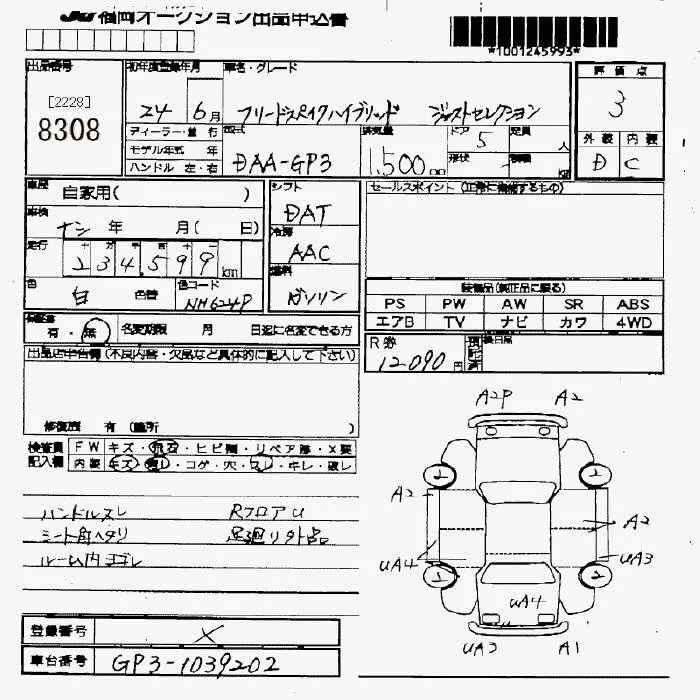 JU 福岡オークション出品申込書
*1001245993*
出品番号
[2228]
8308
初年度登録年月
24 6月
車名・グレード
フリードスパイクハイブリッド ジャストセレクション
評価点
3
外装 内装
D C
ディーラー・並行
モデル年式 年
ハンドル 左・右
型式
DAA-GP3
排気量
1,500
ドア 5
定員 人
形状
車歴 自家用( )
車検 ナシ 年 月( 日)
走行 十 万 千 百 十
234,599km
色 白 色替
色コード NH624P
シフト
DAT
冷房
AAC
燃料
ガソリン
セールスポイント (正常に機能するもの)
装備品(純正品に限る)
PS PW AW SR ABS
エアB TV ナビ カワ 4WD
有・無 名変期限 月 日迄に名変できる方
R券
12,090円
後日品
出品店申告欄(不良内容・欠品など具体的に記入して下さい)
修復歴 有 (箇所 )
検査員 FW キズ・飛石・ヒビ割・リペア跡・X要
記入欄 内装 キズ・汚レ・コゲ・穴・スレ・キレ・破レ
ハンドルスレ Rフロアu
シート角ヘタリ 足廻リ外品
ルーム内ヨゴレ
A2P A2
A2
A2
uA4
uA3
uA4
uA3 A1
登録番号 X
車台番号 GP3-1039202